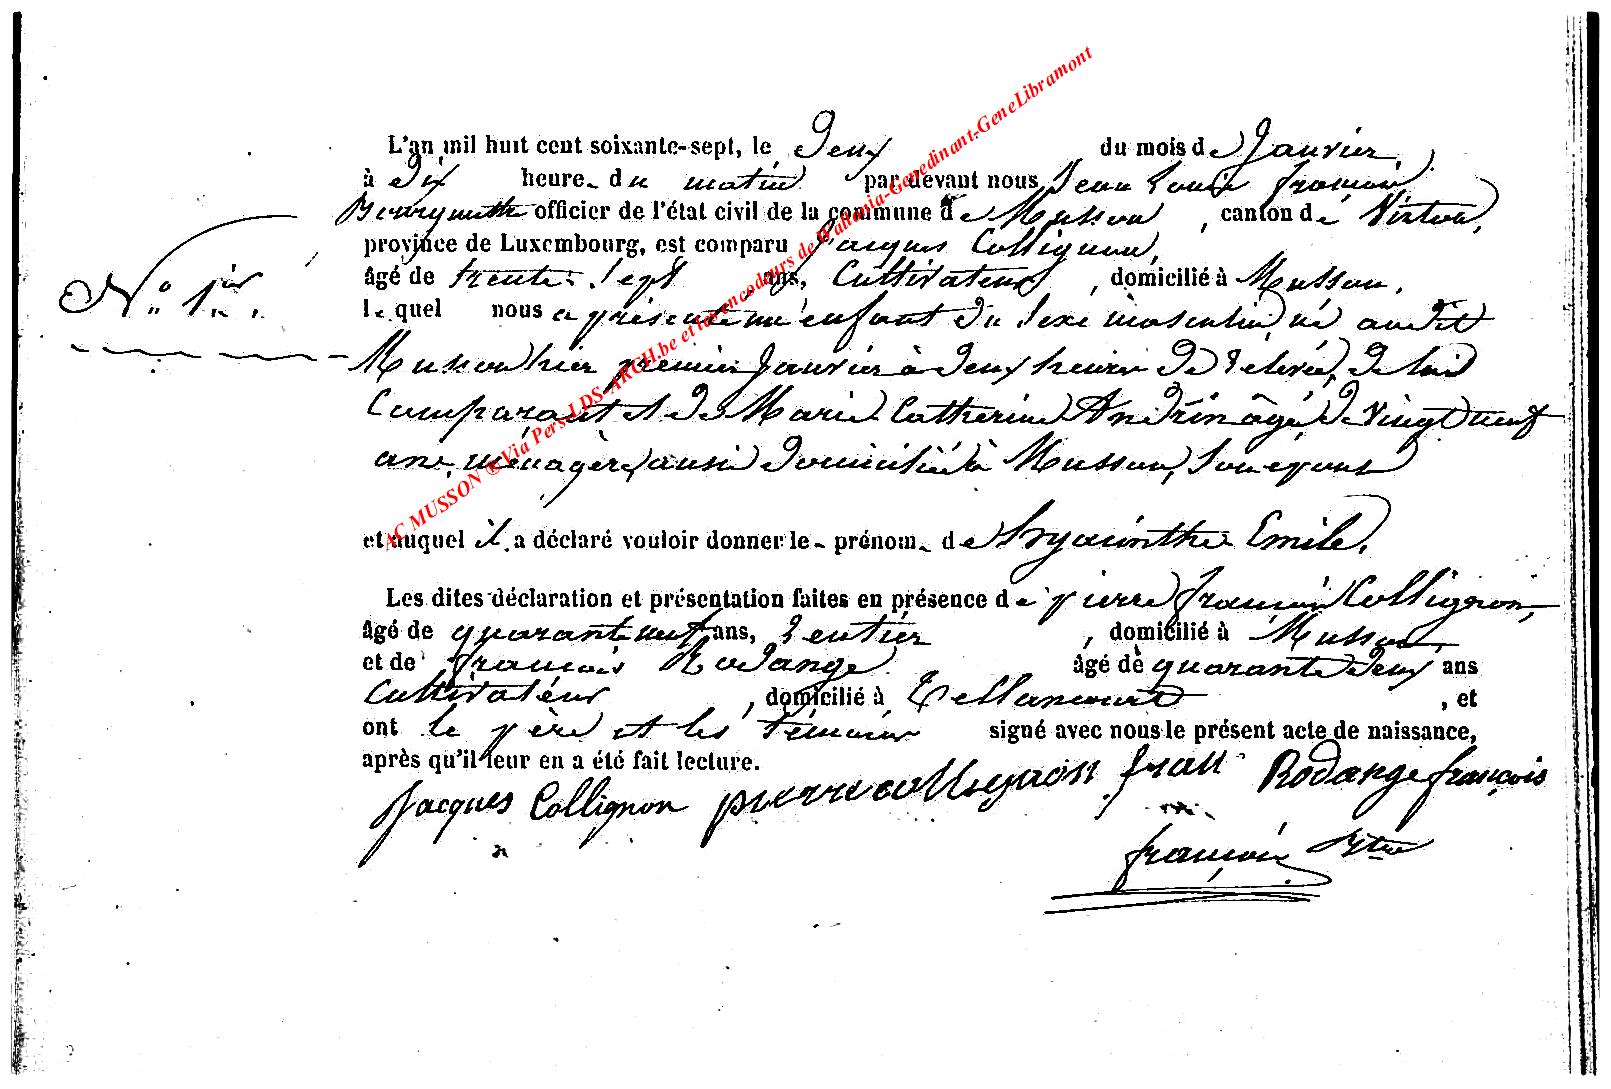 L'an mil huit cent soixante-sept, le Deux du mois de Janvier,
à Dix heure du matin par devant nous Jean Louis François
Bourgmestre officier de l'état civil de la commune de Musson, canton de Virton,
province de Luxembourg, est comparu Jacques Collignon,
âgé de trente-sept ans, Cultivateur, domicilié à Musson,
N° 1er.
lequel nous a présenté un enfant du sexe masculin né audit
Musson hier premier Janvier à Deux heures de relevée, de lui
Comparant et de Marie Catherine Andrin âgée de vingt neuf
ans, ménagère, aussi domiciliée à Musson, son épouse
et auquel il a déclaré vouloir donner le prénom de Hyacinthe Emile.
Les dites déclaration et présentation faites en présence de pierre françois Collignon,
âgé de quarante neuf ans, rentier, domicilié à Musson,
et de françois Rodange âgé de quarante deux ans
Cultivateur, domicilié à Tellancourt, et
ont le père et les témoins signé avec nous le présent acte de naissance,
après qu'il leur en a été fait lecture.
Jacques Collignon pierre collignon fran Rodange françois
françois Btre
AC MUSSON ® Via Pers LDS-ARCH.be et les encodeurs de Wallonia-Genedinant-GeneLibramont